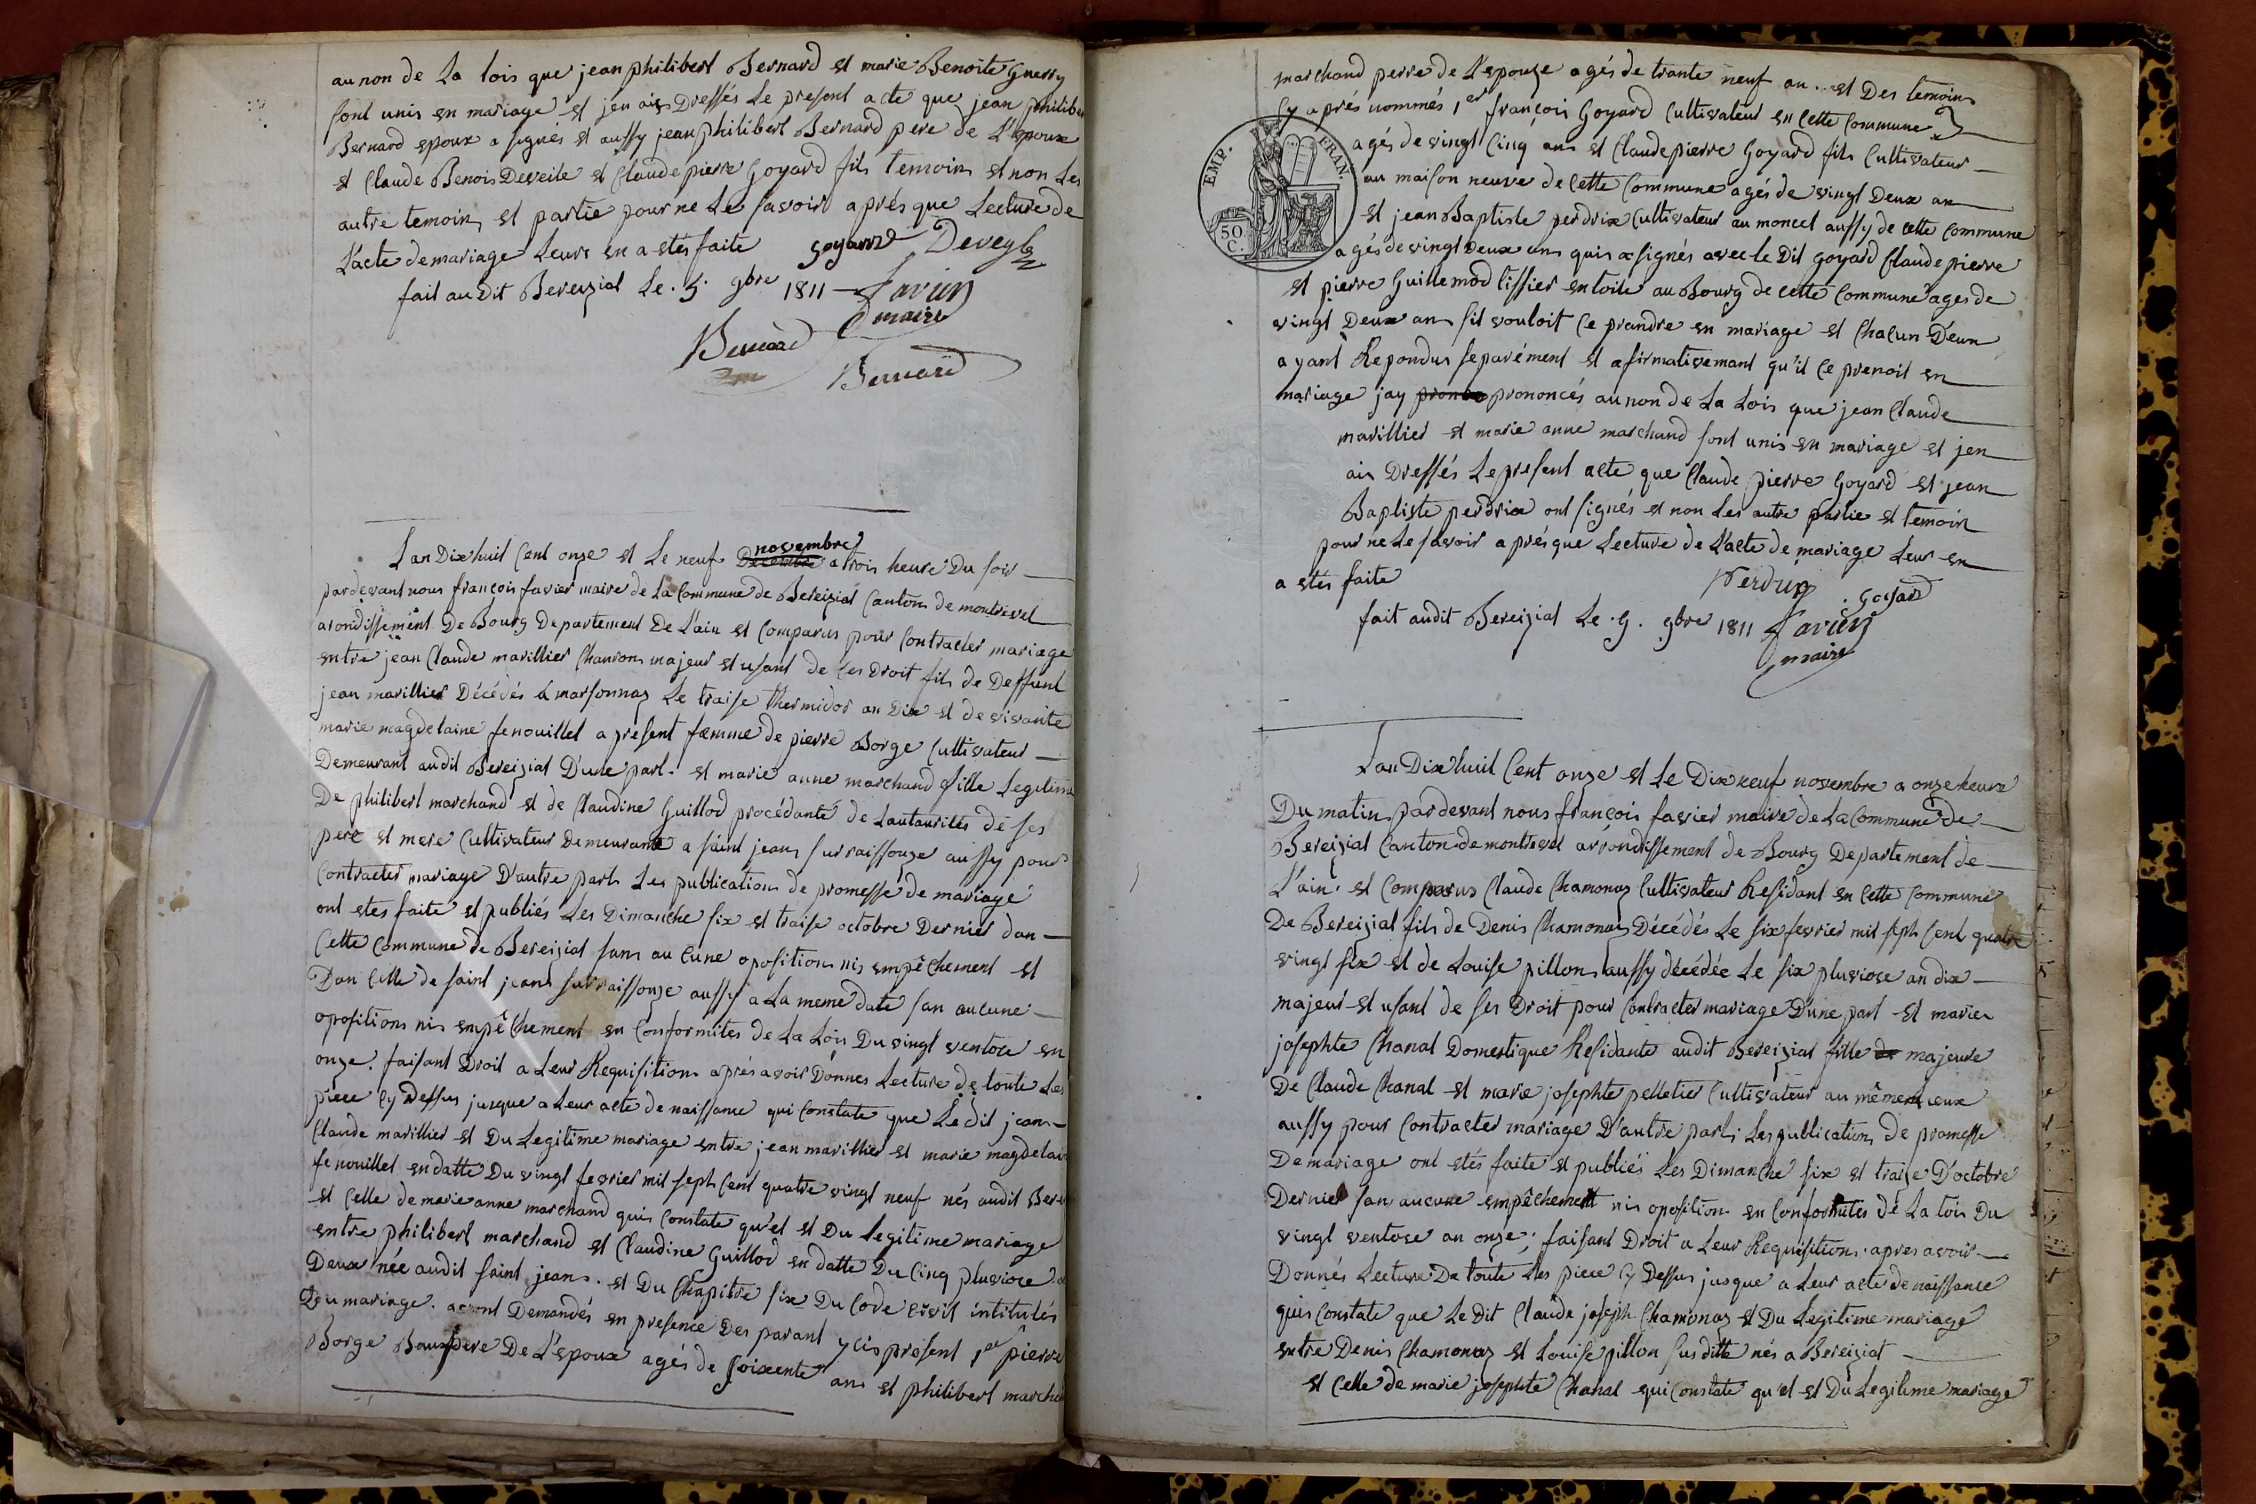 au non de La lois que jean philibert Bernard et marie Benoite Guerry
sont unis en mariage et jen ais Dressés Le present acte que jean philiber
Bernard epoux a signés et aussy jean philibert Bernard pere de L'epoux
et Claude Benois Deveile et Claude pierre Goyard fils temoin et non Les
autre temoin et partie pour ne Le savoir aprés que Lecture de
L'acte de mariage Leurs en a etés faite goyard Deveyle
fait audit Bereizial Le 5 9bre 1811 Favier
maire
Bernard
Bernard
Lan Dix huit Cent onze et Le neuf Decembre novembre a trois heure Du soir
pardevant nous françois favier maire de La Commune de Bereizial Canton de montrevel
arondissement De Bourg Departement De L'ain et Comparus pour Contracter mariage
entre jean Claude marillier Charron majeur et usant de ses Droit fils de Deffunt
jean marillier Décédés a marsonnas Le traise thermidor an Dix et de vivante
marie magdelaine fenouillet a present fæmme de pierre Borge Cultivateur
Demeurant audit Bereizial D'une part. et marie anne marchand fille Legitime
De philibert marchand et de Claudine Guillod procédante de Lautaurités de ses
pere et mere Cultivateur Demeurant a saint jean sur raissouze aussy pour
Contracter mariage D'autre part Les publication de promesse de mariage
ont etes faite et publiés Les Dimanche six et traise octobre Dernier dan
Cette Commune de Bereizial sans au Cune oposition nis empêchement et
Dan Celle de saint jean sur raissouze aussy a La meme date san aucune
oposition nis empêchement en Conformites de La Lois Du vingt ventose en
onze. faisant Droit a Leur Requisition aprés avoir Donnés Lecture de toute Les
piece Cy Dessus jusque a Leur acte de naissance qui Constate que Ledit jean
Claude marillier et Du Legitime mariage entre jean marillier et marie magdelain
fenouillet en datte Du vingt fevrier mil sept Cent quatre vingt neuf nés audit Bere
et Celle de marie anne marchand quis Constate qu'el et Du Legitime mariage
entre philibert marchand et Claudine Guillod en datte Du Cinq pluviose
Deux née audit saint jean. et Du Chapitre six Du Code Civil intitulés
Du mariage. avont Demandés en presence Des parant y cis present 1er pierre
Borge Beaupere De L'epoux agés de soixente ans et philibert marcha
marchand perre de L'epouze agés de trante neuf an et Des temoin
Cy aprés nommés 1er françois Goyard Cultivateur en Cette Commune
agés de vingt Cinq ans et Claude pierre Goyard fils Cultivateur
au maison neuve de Cette Commune agés de vingt Deux an
et jean Baptiste perdrix Cultivateur au moncel aussy de Cette Commune
agés de vingt Deux ans quis a signés avec le Dit goyard Claude pierre
et pierre Guillemod tissier en toile au Bourg de Cette Commune ages de
vingt Deux an sil vouloit Ce prandre en mariage et Chacun D'eun
ayant Repondus separément et afirmativemant qu'il Ce prenoit en
mariage jay prononcés au non de La Lois que jean Claude
marillier et marie anne marchand sont unis en mariage et jen
ais Dressés Le present acte que Claude pierre Goyard et jean
Baptiste perdrix ont signés et non Les autre partie et temoin
pour ne Le savoir aprés que Lecture de L'acte de mariage Leur en
a etés faite Perdrix goyard
fait audit Bereizial Le 9 9bre 1811 Favier
maire
EMP. FRAN.
50 C.
Lan Dix huit Cent onze et Le Dix neuf novembre a onze heure
Du matin pardevant nous françois favier maire de La Commune de
Bereizial Canton de montrevel arrondissement de Bourg Departement de
L'ain. et Comparus Claude Chamonaz Cultivateur Residant en Cette Commune
De Bereizial fils de Denis Chamonaz Décédés Le six fevrier mil sept Cent quatre
vingt six et de Louise pillon aussy décédée Le six pluviose an dix
majeur et usant de ses Droit pour Contracter mariage D'une part et marie
josephte Chanal Domestique Residante audit Bereizial fille de majeure
De Claude Chanal et marie josephte pelletier Cultivateur au même Lieux
aussy pour Contracter mariage D'autre part; Les publication de promesse
De mariage ont etés faite et publiés Les Dimanche six et traize D'octobre
Dernier san aucune empêchement nis oposition en Conformites de La Lois Du
vingt ventose an onze; faisant Droit a Leur Requisition. apres avoir
Donnés Lecture De toute Les piece Cy Dessus jusque a Leur acte de naissance
quis Constate que Le Dit Claude joseph Chamonaz et Du Legitime mariage
entre Denis Chamonaz et Louise pillon susditte nés a Bereizial
et Celle de marie josephte Chanal qui Constate qu'el et Du Legitime mariage